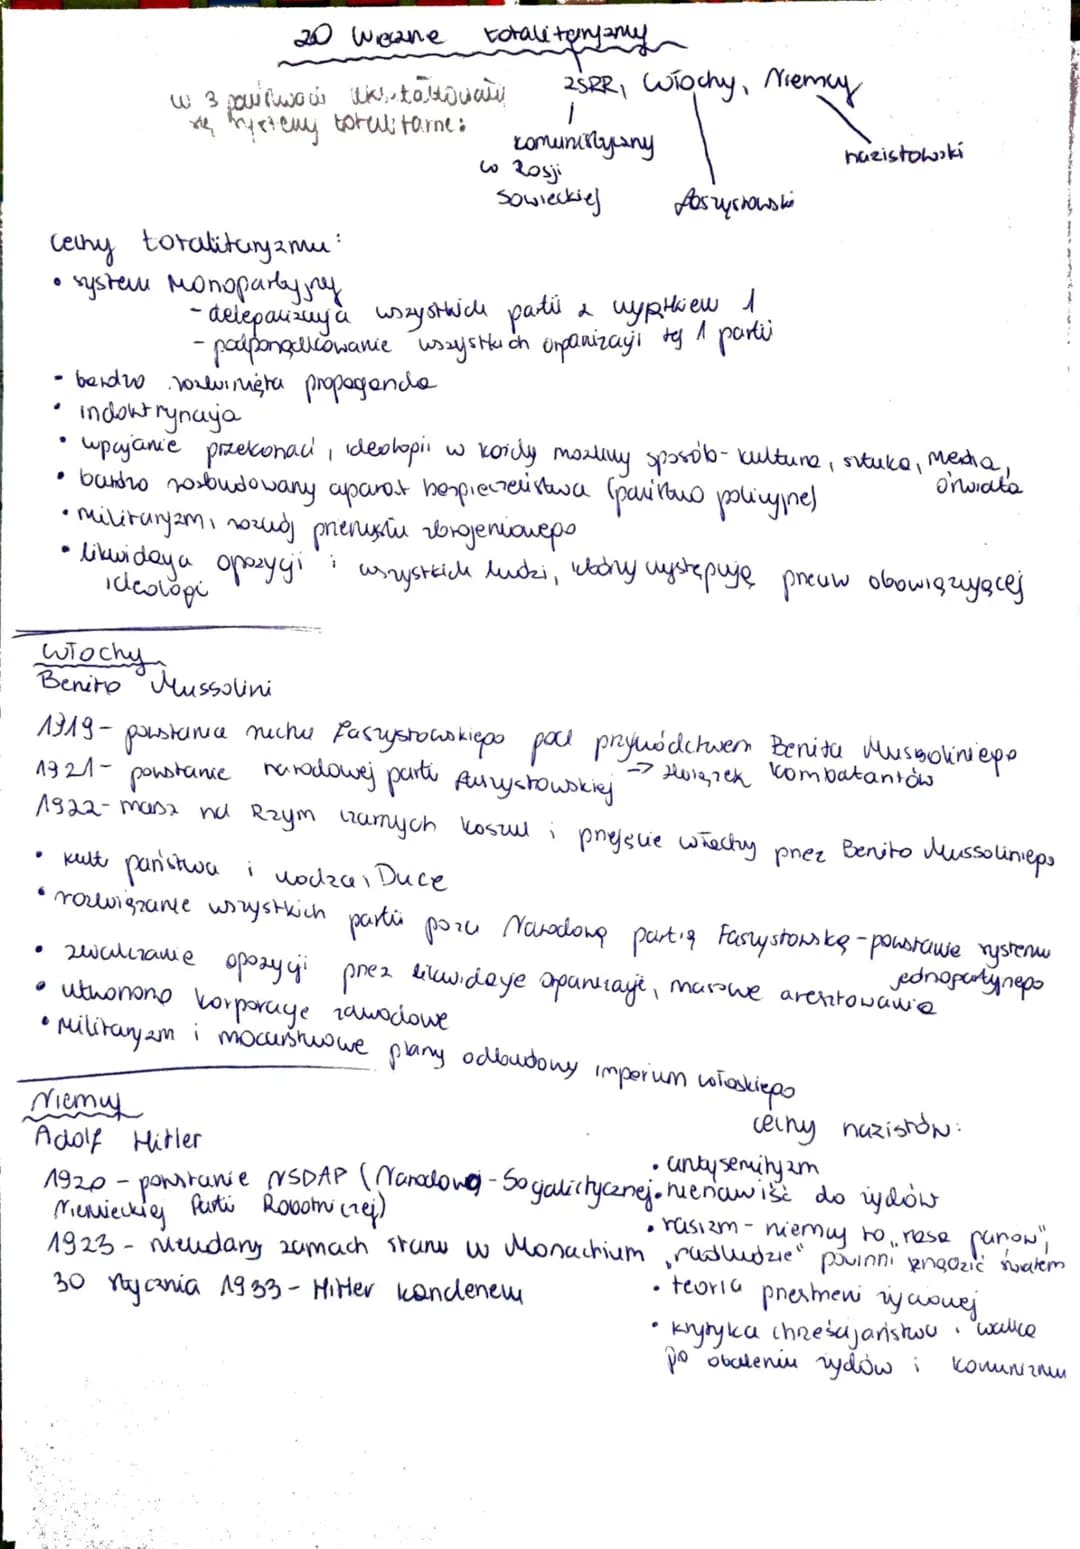 20 wieczne totalitaryzmy
w 3 państwach ukształtowały
się systemy totalitarne:
ZSRR, Włochy, Niemcy
komunistyczny
w Rosji
Sowieckiej
faszystowski
nazistowski
Cechy totalitaryzmu:
• system monopartyjny
- delegalizacja wszystkich partii z wyjątkiem 1
- podporządkowanie wszystkich organizacji tej 1 partii
- bardzo rozwinięta propaganda
• indoktrynacja
• wpajanie przekonań, ideologii w każdy możliwy sposób - kultura, sztuka, media,
oświata
• bardzo rozbudowany aparat bezpieczeństwa (państwo policyjne)
• militaryzm, rozwój przemysłu zbrojeniowego
• likwidacja opozycji i wszystkich ludzi, którzy występują przeciw obowiązującej
ideologi
Włochy
Benito Mussolini
1919 - powstanie ruchu faszystowskiego pod przywództwem Benita Mussoliniego
→ związek kombatantów
1921 - powstanie narodowej partii faszystowskiej
1922 - marsz na Rzym czarnych koszul i przejęcie władzy przez Benito Mussoliniego
• kult państwa i wodza, Duce
• rozwiązanie wszystkich partii poza Narodową partią Faszystowską - powstanie systemu
jednopartyjnego
• zwalczanie opozycji przez likwidację organizacji, masowe aresztowania
• utworzono korporacje zawodowe
• militaryzm i mocarstwowe plany odbudowy imperium włoskiego
Niemcy
Adolf Hitler
1920 - powstanie NSDAP (Narodowo - Socjalistycznej
Niemieckiej Partii Robotniczej)
1923 - nieudany zamach stanu w Monachium
30 stycznia 1933 - Hitler kanclerzem
cechy nazistów:
• antysemityzm
• nienawiść do żydów
• rasizm - niemcy to "rasa panów",
"nadludzie" powinni rządzić światem
• teoria przestrzeni życiowej
• krytyka chrześcijaństwa i walka
po obaleniu żydów i komunizmu